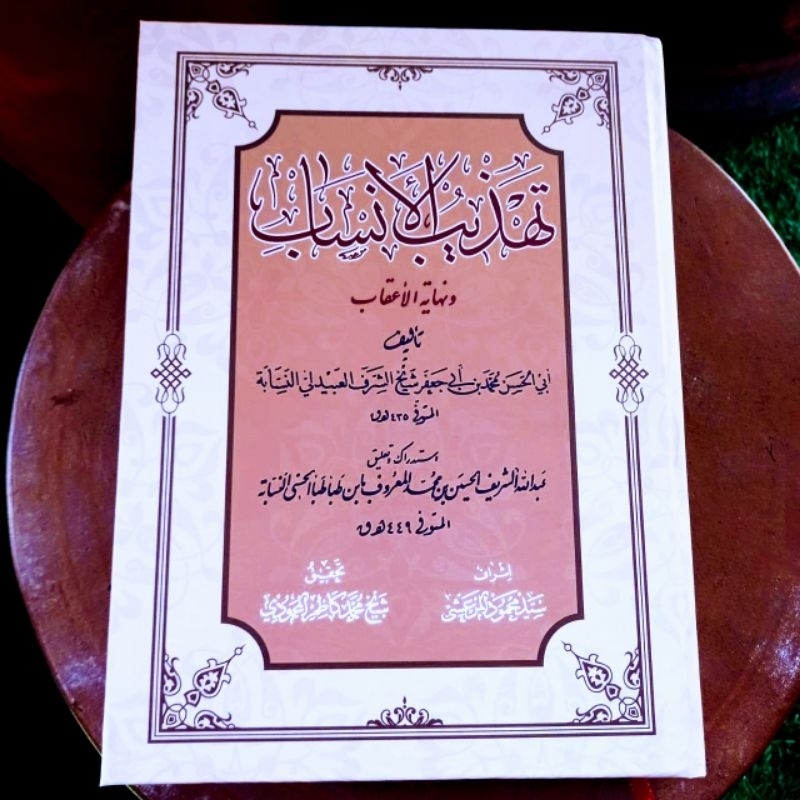 تهذيب الأنساب
ونهاية الأعقاب
تأليف
أبي الحسن محمد بن أبي جعفر شيخ الشرف العبيدلي النسابة
المتوفى ٤٣٥ هـ ق
واستدراك وتعليق
عبدالله الشريف الحسين بن محمد المعروف بابن طباطبا الحسني النسابة
المتوفى ٤٤٩ هـ ق
إشراف
سيد محمود المرعشي
تحقيق
شيخ محمد كاظم المحمودي